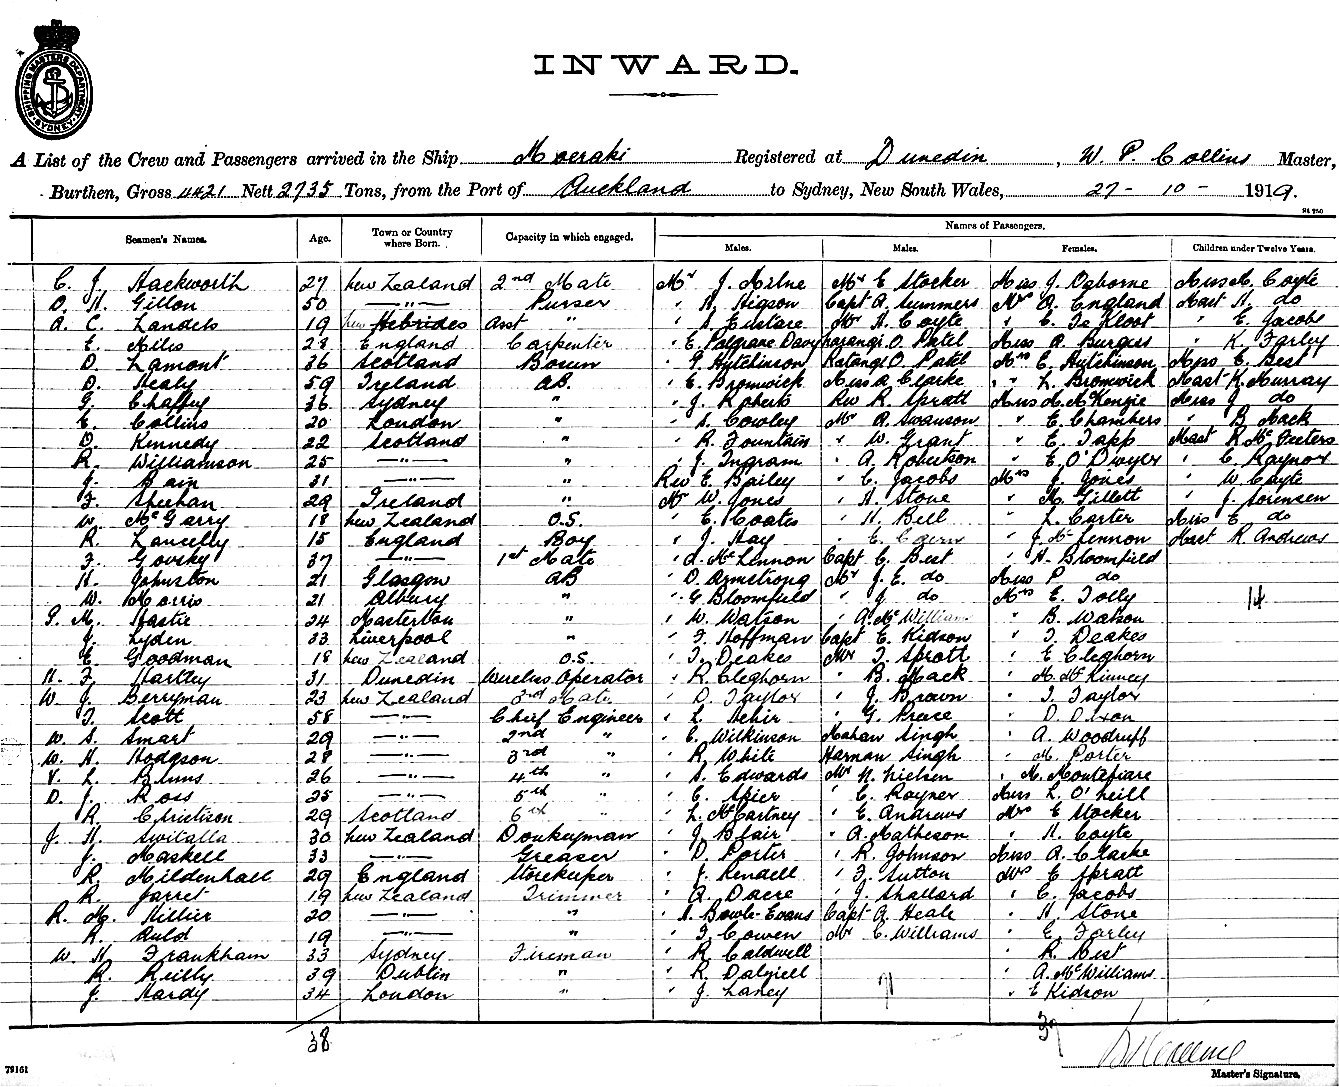 SHIPPING MASTERS DEPARTMENT SYDNEY
INWARD.
A List of the Crew and Passengers arrived in the Ship Moeraki Registered at Dunedin, W. P. Collins Master,
Burthen, Gross 4421 Nett 2735 Tons, from the Port of Auckland to Sydney, New South Wales, 27 - 10 - 1919.
Names of Passengers.
Seamen's Names. Age. Town or Country where Born. Capacity in which engaged. Males. Males. Females. Children under Twelve Years.
C. J. Hackworth 27 New Zealand 2nd Mate Mr J. Milne Mr E Stocker Miss J. Osborne Miss M. Coyte
D. H. Gillon 50 —"— Purser " H. Higson Capt A. Summers Mrs A. England Mast H. do
A. C. Landels 19 New Hebrides Asst " " A Eustace Mr H. Coyte " E. De Kloot " E. Jacobs
E. Miles 28 England Carpenter " E. Palgrave Davy Narangi O. Patel Miss A. Burgess " K. Farley
D. Lamont 36 Scotland Bosun " G Hutchinson Ratangi O Patel Mrs E. Hutchinson Miss E. Best
D. Healy 59 Ireland AB. " E. Bromwick Miss A Clarke " " L. Bromwick Mast K. Murray
G. Chaffey 36 Sydney " " J. Roberts Rev R. Spratt Miss M. McKenzie Miss J do
E. Collins 20 London " " A. Cowley Mr A. Swanson " E. Chambers " B Mack
D. Kennedy 22 Scotland " " R. Fountain " W. Grant " E. Tapp Mast R McPeeters
R. Williamson 25 —"— " " J. Ingram " A. Robertson " E. O'Dwyer " C. Raynor
J. Bain 31 —"— " Rev E. Bailey " C. Jacobs Mrs J. Jones " W Coyte
F. Sheehan 29 Ireland " Mr W. Jones " H. Stone " M. Gillett " J. Sorensen
W. McGarry 18 New Zealand O.S. " E. Coates " H. Bell " L. Carter Miss E do
R. Lancelly 15 England Boy " J. Hay " E. " J. McLennon Mast R Andrews
F. Govsky 37 —"— 1st Mate " A. McLennon Capt C. Best " H. Bloomfield
H. Johnston 21 Glasgow AB " D. Armstrong Mr J. E. do Miss P do
W. Morris 21 Albury " " G Bloomfield " J do Mrs E. Jolly 14
P. M. Hastie 24 Masterton " " W. Watson " A. McWilliam " B. Watson
J. Lyden 33 Liverpool " " F. Hoffman Capt E. Kidson " F. Deakes
E. Goodman 18 New Zealand O.S. " F. Deakes Mr F. Spratt " E Cleghorn
H. F. Hartley 31 Dunedin Wireless Operator " R. Cleghorn " B. Mack " M. McKinney
W. J. Berryman 23 New Zealand 3rd Mate " D Taylor " J Brown " F. Taylor
F. Scott 58 —"— Chief Engineer " L. " G. Pearce " D. Dixon
W. S. Smart 29 —"— 2nd " " E. Wilkinson Mahan Singh " A. Woodruff
W. H. Hodgson 28 —"— 3rd " " R White Harnam Singh " M. Porter
V. L. Binns 26 —"— 4th " " A. Edwards Mr N. Nielsen " M. Montefiore
D. J. Ross 25 —"— 5th " " C. Spier " C. Rayner Miss L. O'Neill
R. Christison 29 Scotland 6th " " L. McCartney " E. Andrews Mrs E Stocker
J. H. Switalla 30 New Zealand Donkeyman " J Blair " A. Matheson " H. Coyte
J. Maskell 33 —"— Greaser " D. Porter " R. Johnson Miss A. Clarke
R. Mildenhall 29 England Storekeeper " J. Rendell " F. Sutton Mrs E Spratt
R. Jarret 19 New Zealand Trimmer " A. Dacre " J. Shallard " C. Jacobs
R. M. Hillier 20 —"— " " H. Bowle-Evans Capt A. Heale " H. Stone
R. Auld 19 —"— " " F Cowen Mr C. Williams " E Farley
W. H. Frankham 33 Sydney Fireman " R Caldwell " R. Best
R. Reilly 39 Dublin " " R. Dalziell " A. McWilliams
J. Hardy 34 London " " J. Laney 71 " E Kidson
38 37
79161 Master's Signature.